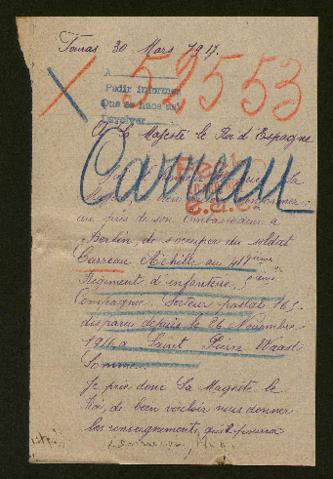 Touras 30 Mars 1917.
52553
A
Pedir informes
Que se hace así
Devolver
A Sa Majesté le Roi d'Espagne
Carreau
la
auprès de son Ambassadeur à
Berlin de s'occuper du soldat
Carreau Achille au 418ième
Régiment d'infanterie, 5ième
Compagnie. Secteur postal 165
disparu depuis le 26 Novembre
1916 à Saint Pierre Waast
Somme.
Je prie donc Sa Magesté le
Roi, de bien vouloir nous donner
les renseignements, qu'il pourra